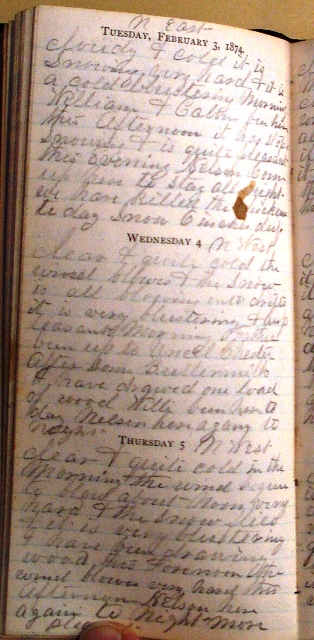 N East
TUESDAY, FEBRUARY 3, 1874.
Cloudy & cold it is
Snowing very hard & it is
a cold blustering Morning
William & Calvin ben her
this Afternoon it has stop
Snowing & is quite pleasant
this Evening Nelson Com
up hen to Stay all night
we han killed the chicken
to day Snow 6 inches deep
WEDNESDAY 4 N West
Clear & quite cold the
wind blows & the Snow
is all blowing into drifts
it is very blustering & unp
leasant Morning Father
ben up to Uncel Chester
After Some Buttermilk
I have dawed one load
of wood Willie ben hen to
day Nelson hen again to
night
THURSDAY 5 N West
Clear & quite cold in the
Morning the wind begun
to blow about Noon very
hard & the Snow flies
& it is very blustering
I have ben drawing
wood this Forenoon the
wind blows very hard this
Afternoon Nelson hen
again to Night More